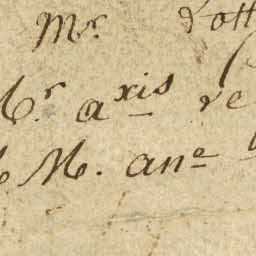 Mr. Lott
Mr. axis re
M. ane